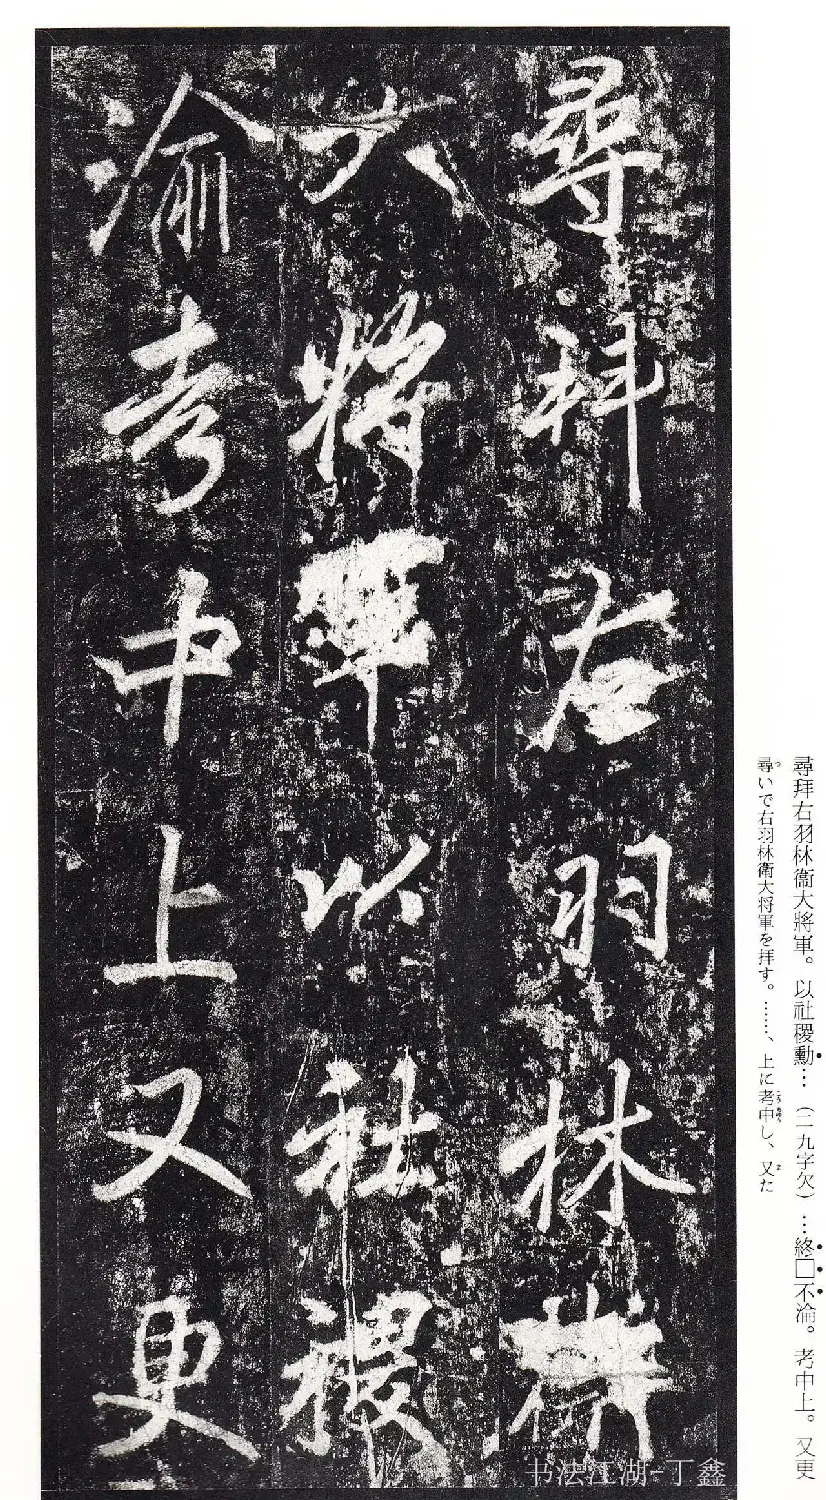 尋拜右羽林衛
大將軍以社稷
渝考中上又更
尋拜右羽林衞大將軍。以社稷勳…（二九字欠）…終□不渝。考中上。又更
尋いで右羽林衛大将軍を拝す。……、上に考中し、又た
书法江湖-丁鑫